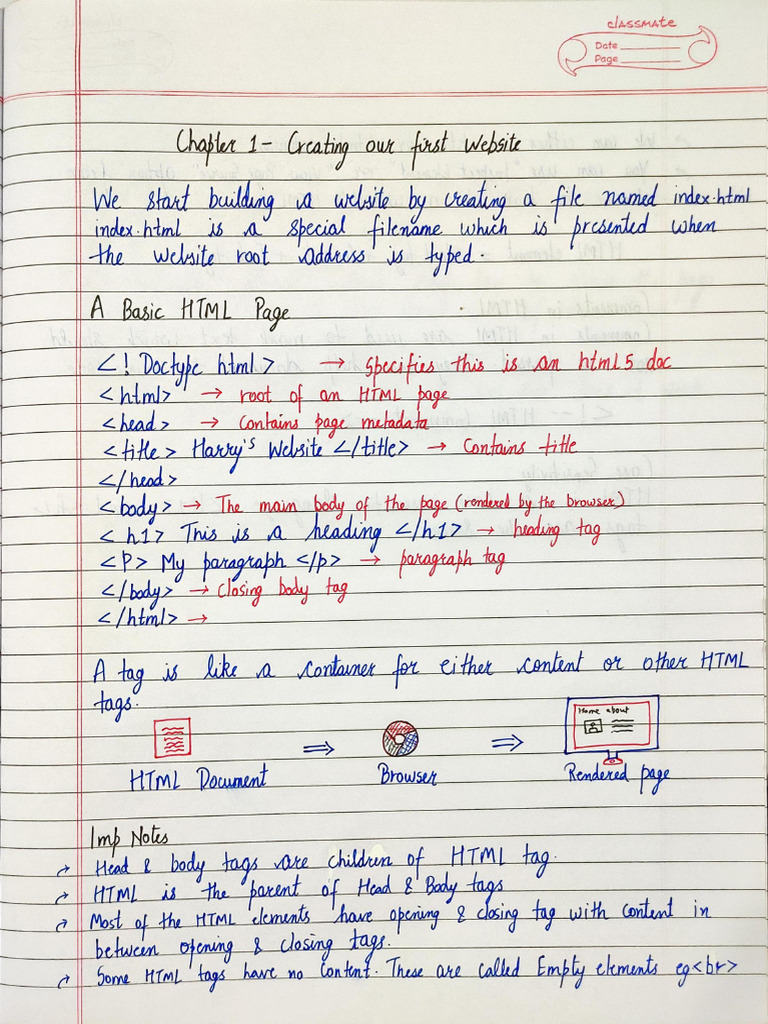 classmate
Date
Page
Chapter 1 - Creating our first Website
We start building a website by creating a file named index.html
index.html is a special filename which is presented when
the website root address is typed.
A Basic HTML Page
<! Doctype html> → Specifies this is an html 5 doc
<html> → root of an HTML page
<head> → Contains page metadata
<title> Harry's Website </title> → Contains title
</head>
<body> → The main body of the page (rendered by the browser)
<h1> This is a heading </h1> → heading tag
<P> My paragraph </p> → paragraph tag
</body> → Closing body tag
</html> →
A tag is like a container for either content or other HTML
tags.
Home about
HTML Document ⇒ Browser ⇒ Rendered page
Imp Notes
→ Head & body tags are children of HTML tag.
→ HTML is the parent of Head & Body tags
→ Most of the HTML elements have opening & closing tag with content in
between opening & closing tags.
→ Some HTML tags have no content. These are called Empty elements eg <br>